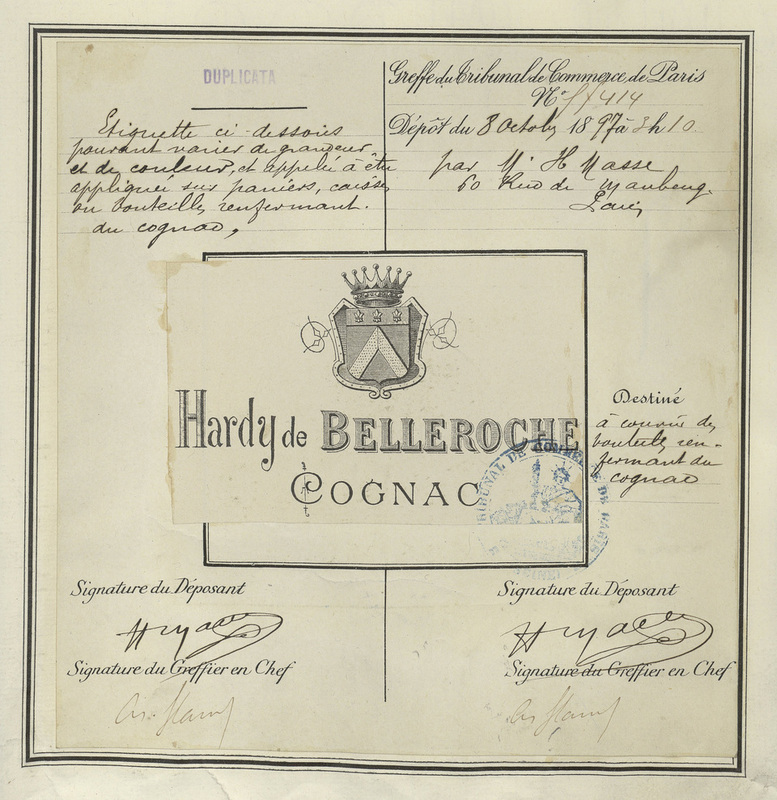 DUPLICATA
Etiquette ci-dessous
pouvant varier de grandeur
et de couleur, et appelée à être
appliquée sur paniers, caisses
ou bouteilles renfermant
du cognac,
Greffe du Tribunal de Commerce de Paris
No 414
Dépôt du 8 Octobre 1897 à 3h10
par Mr H Masse
60 Rue de Maubeuge
Paris
Hardy de BELLEROCHE
COGNAC
TRIBUNAL DE COMMERCE DE PARIS
Destiné
à couvrir des
bouteilles ren-
fermant du
cognac
Signature du Déposant
Signature du Déposant
HMasse
HMasse
Signature du Greffier en Chef
Signature du Greffier en Chef